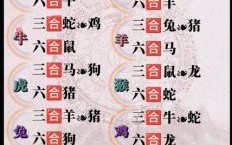 六合
牛
三合蛇鸡
六合鼠
虎
三合马狗
六合猪
兔
三合羊猪
六合狗
六合
羊
三合兔猪
六合马
猴
三合鼠龙
六合蛇
鸡
三合牛蛇
六合龙